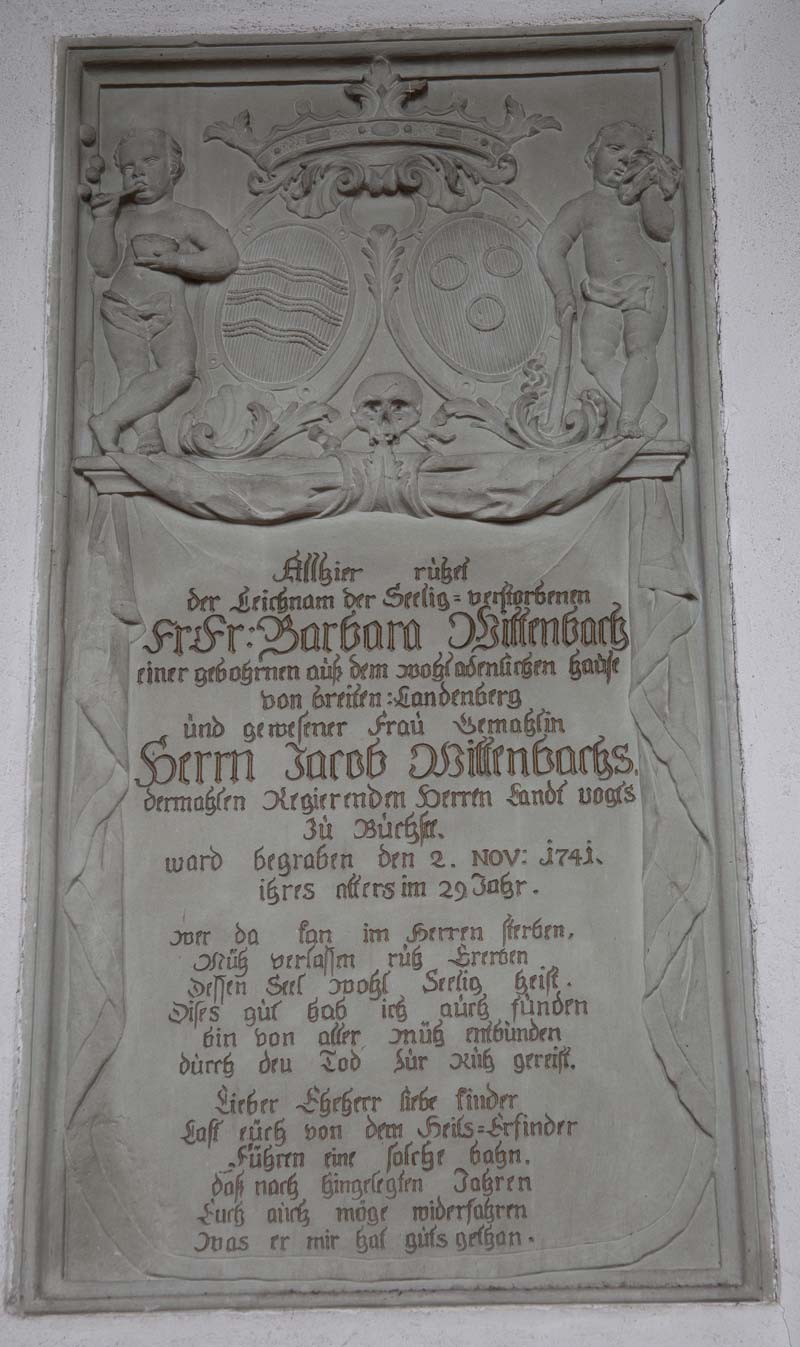 Allhier rühet
der Leichnam der Seelig=verstorbenen
Fr: Fr: Barbara Wittenbach
einer gebohrnen auß dem wohladenlichen hause
von breiten:Landenberg
und gewesener Frau Gemahlin
Herrn Jacob Wittenbachs.
dermahlen Regierenden Herren Landt vogts
Zu Buchsee.
ward begraben den 2. NOV: 1741.
ihres alters im 29 Jahr.
wer da kan im Herren sterben,
Müh verlassen ruh Ererben
Dessen Seel wohl Seelig heist.
Dises gut hab ich auch funden
bin von aller müh entbunden
durch den Tod zur Ruh gereist.
Lieber Eheherr liebe kinder
Last euch von dem Heils=Erfinder
Führen eine solche bahn.
daß nach hingelegten Jahren
Euch auch möge widerfahren
Was er mir hat guts gethan.